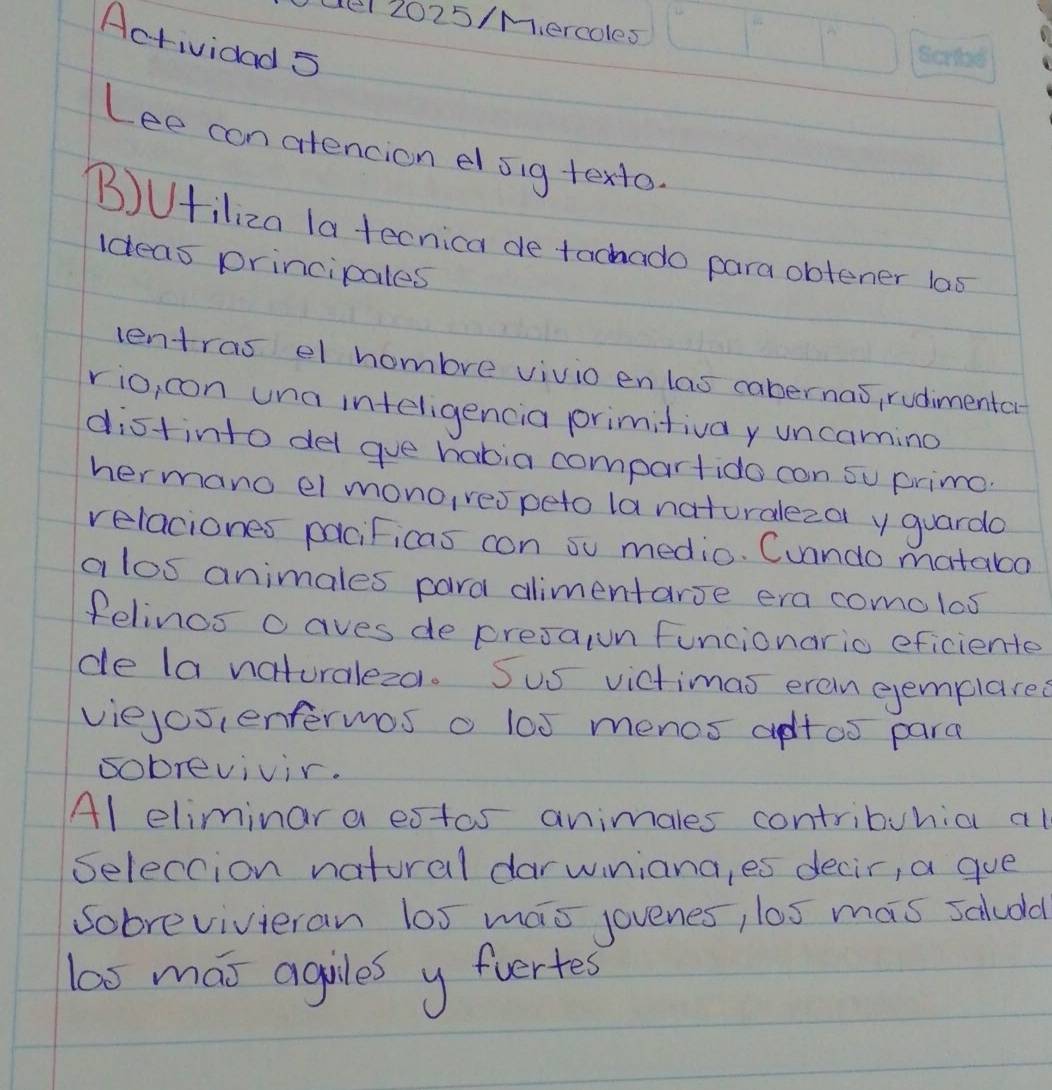 del 2025/Miercoles
Scribe
Actividad 5
Lee con atencion el sig texto.
B) Utiliza la tecnica de tachado para obtener las
ideas principales
ientras el hombre vivio en las cabernas, rudimenta-
rio, con una inteligencia primitiva y uncamino
distinto del que habia compartido con su primo.
hermano el mono, respeto la naturaleza y guardo
relaciones pacificas con su medio. Cuando mataba
a los animales para alimentarse era como los
felinos o aves de presa, un funcionario eficiente
de la naturaleza. Sus victimas eran ejemplares
viejos, enfermos o los menos aptos para
sobrevivir.
Al eliminar a estos animales contribuhia al
Seleccion natural darwiniana, es decir, a que
sobrevivieran los más jovenes, los más saluda
los más agiles y fuertes